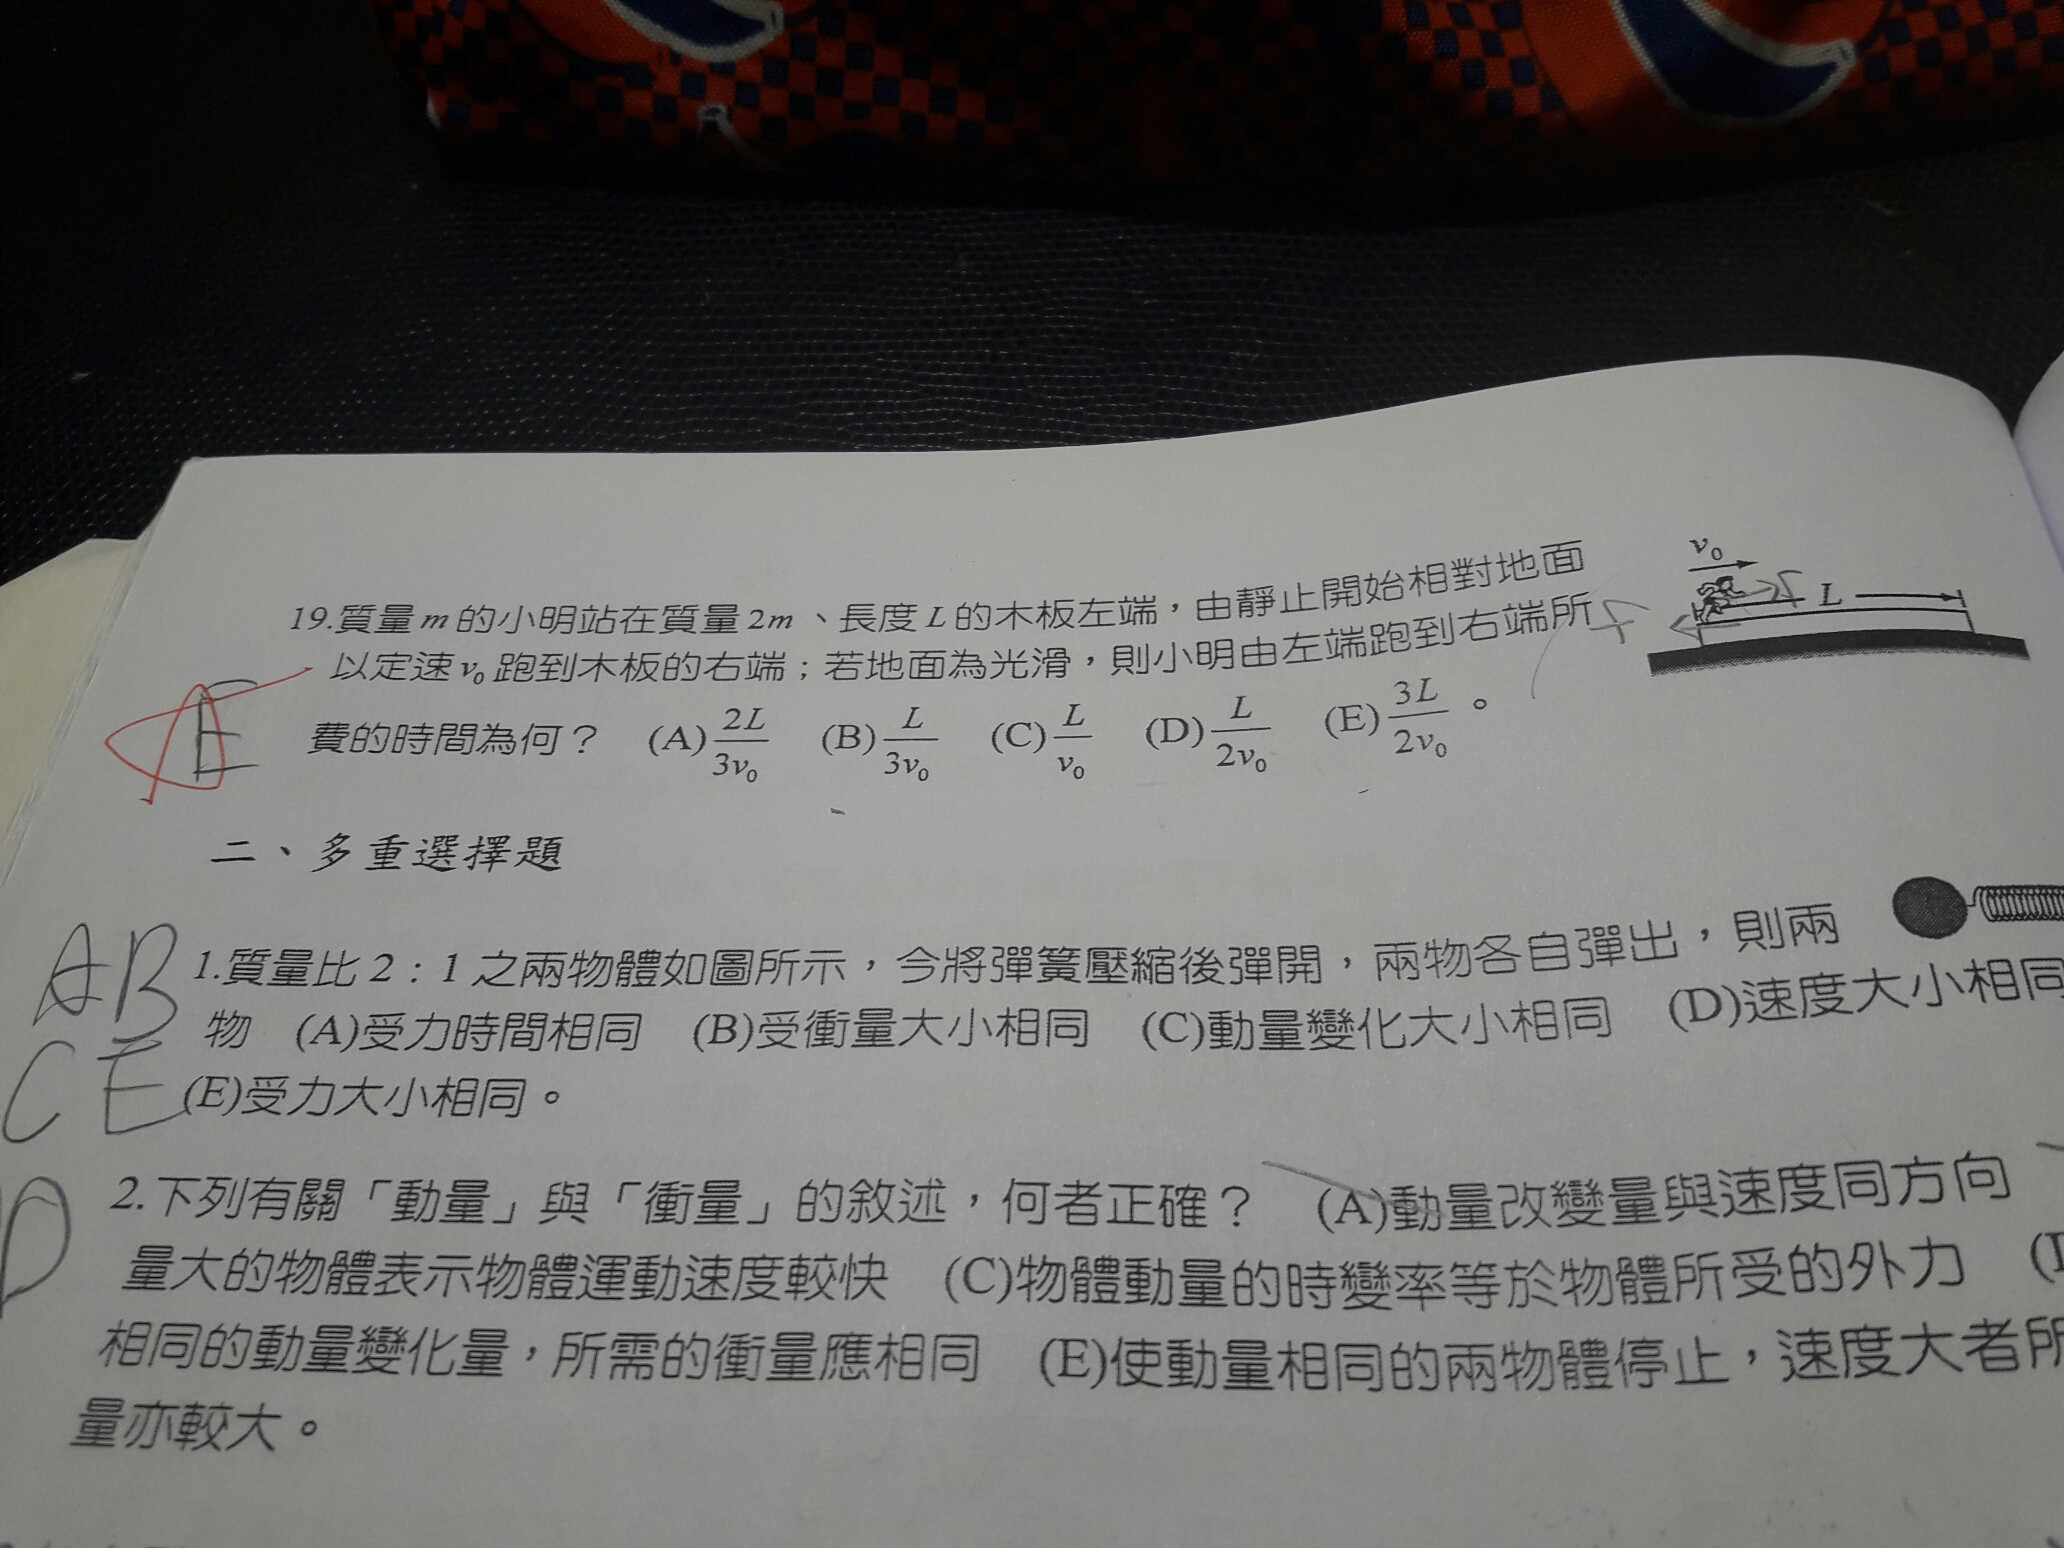 v₀
L
19.質量 m 的小明站在質量 2m、長度 L 的木板左端，由靜止開始相對地面
以定速 v₀ 跑到木板的右端；若地面為光滑，則小明由左端跑到右端所
費的時間為何？ (A) 2L/3v₀ (B) L/3v₀ (C) L/v₀ (D) L/2v₀ (E) 3L/2v₀。
A
E
二、多重選擇題
AB
1.質量比 2：1 之兩物體如圖所示，今將彈簧壓縮後彈開，兩物各自彈出，則兩
物 (A)受力時間相同 (B)受衝量大小相同 (C)動量變化大小相同 (D)速度大小相同
CE
(E)受力大小相同。
D
2.下列有關「動量」與「衝量」的敘述，何者正確？ (A)動量改變量與速度同方向
量大的物體表示物體運動速度較快 (C)物體動量的時變率等於物體所受的外力
相同的動量變化量，所需的衝量應相同 (E)使動量相同的兩物體停止，速度大者所
量亦較大。